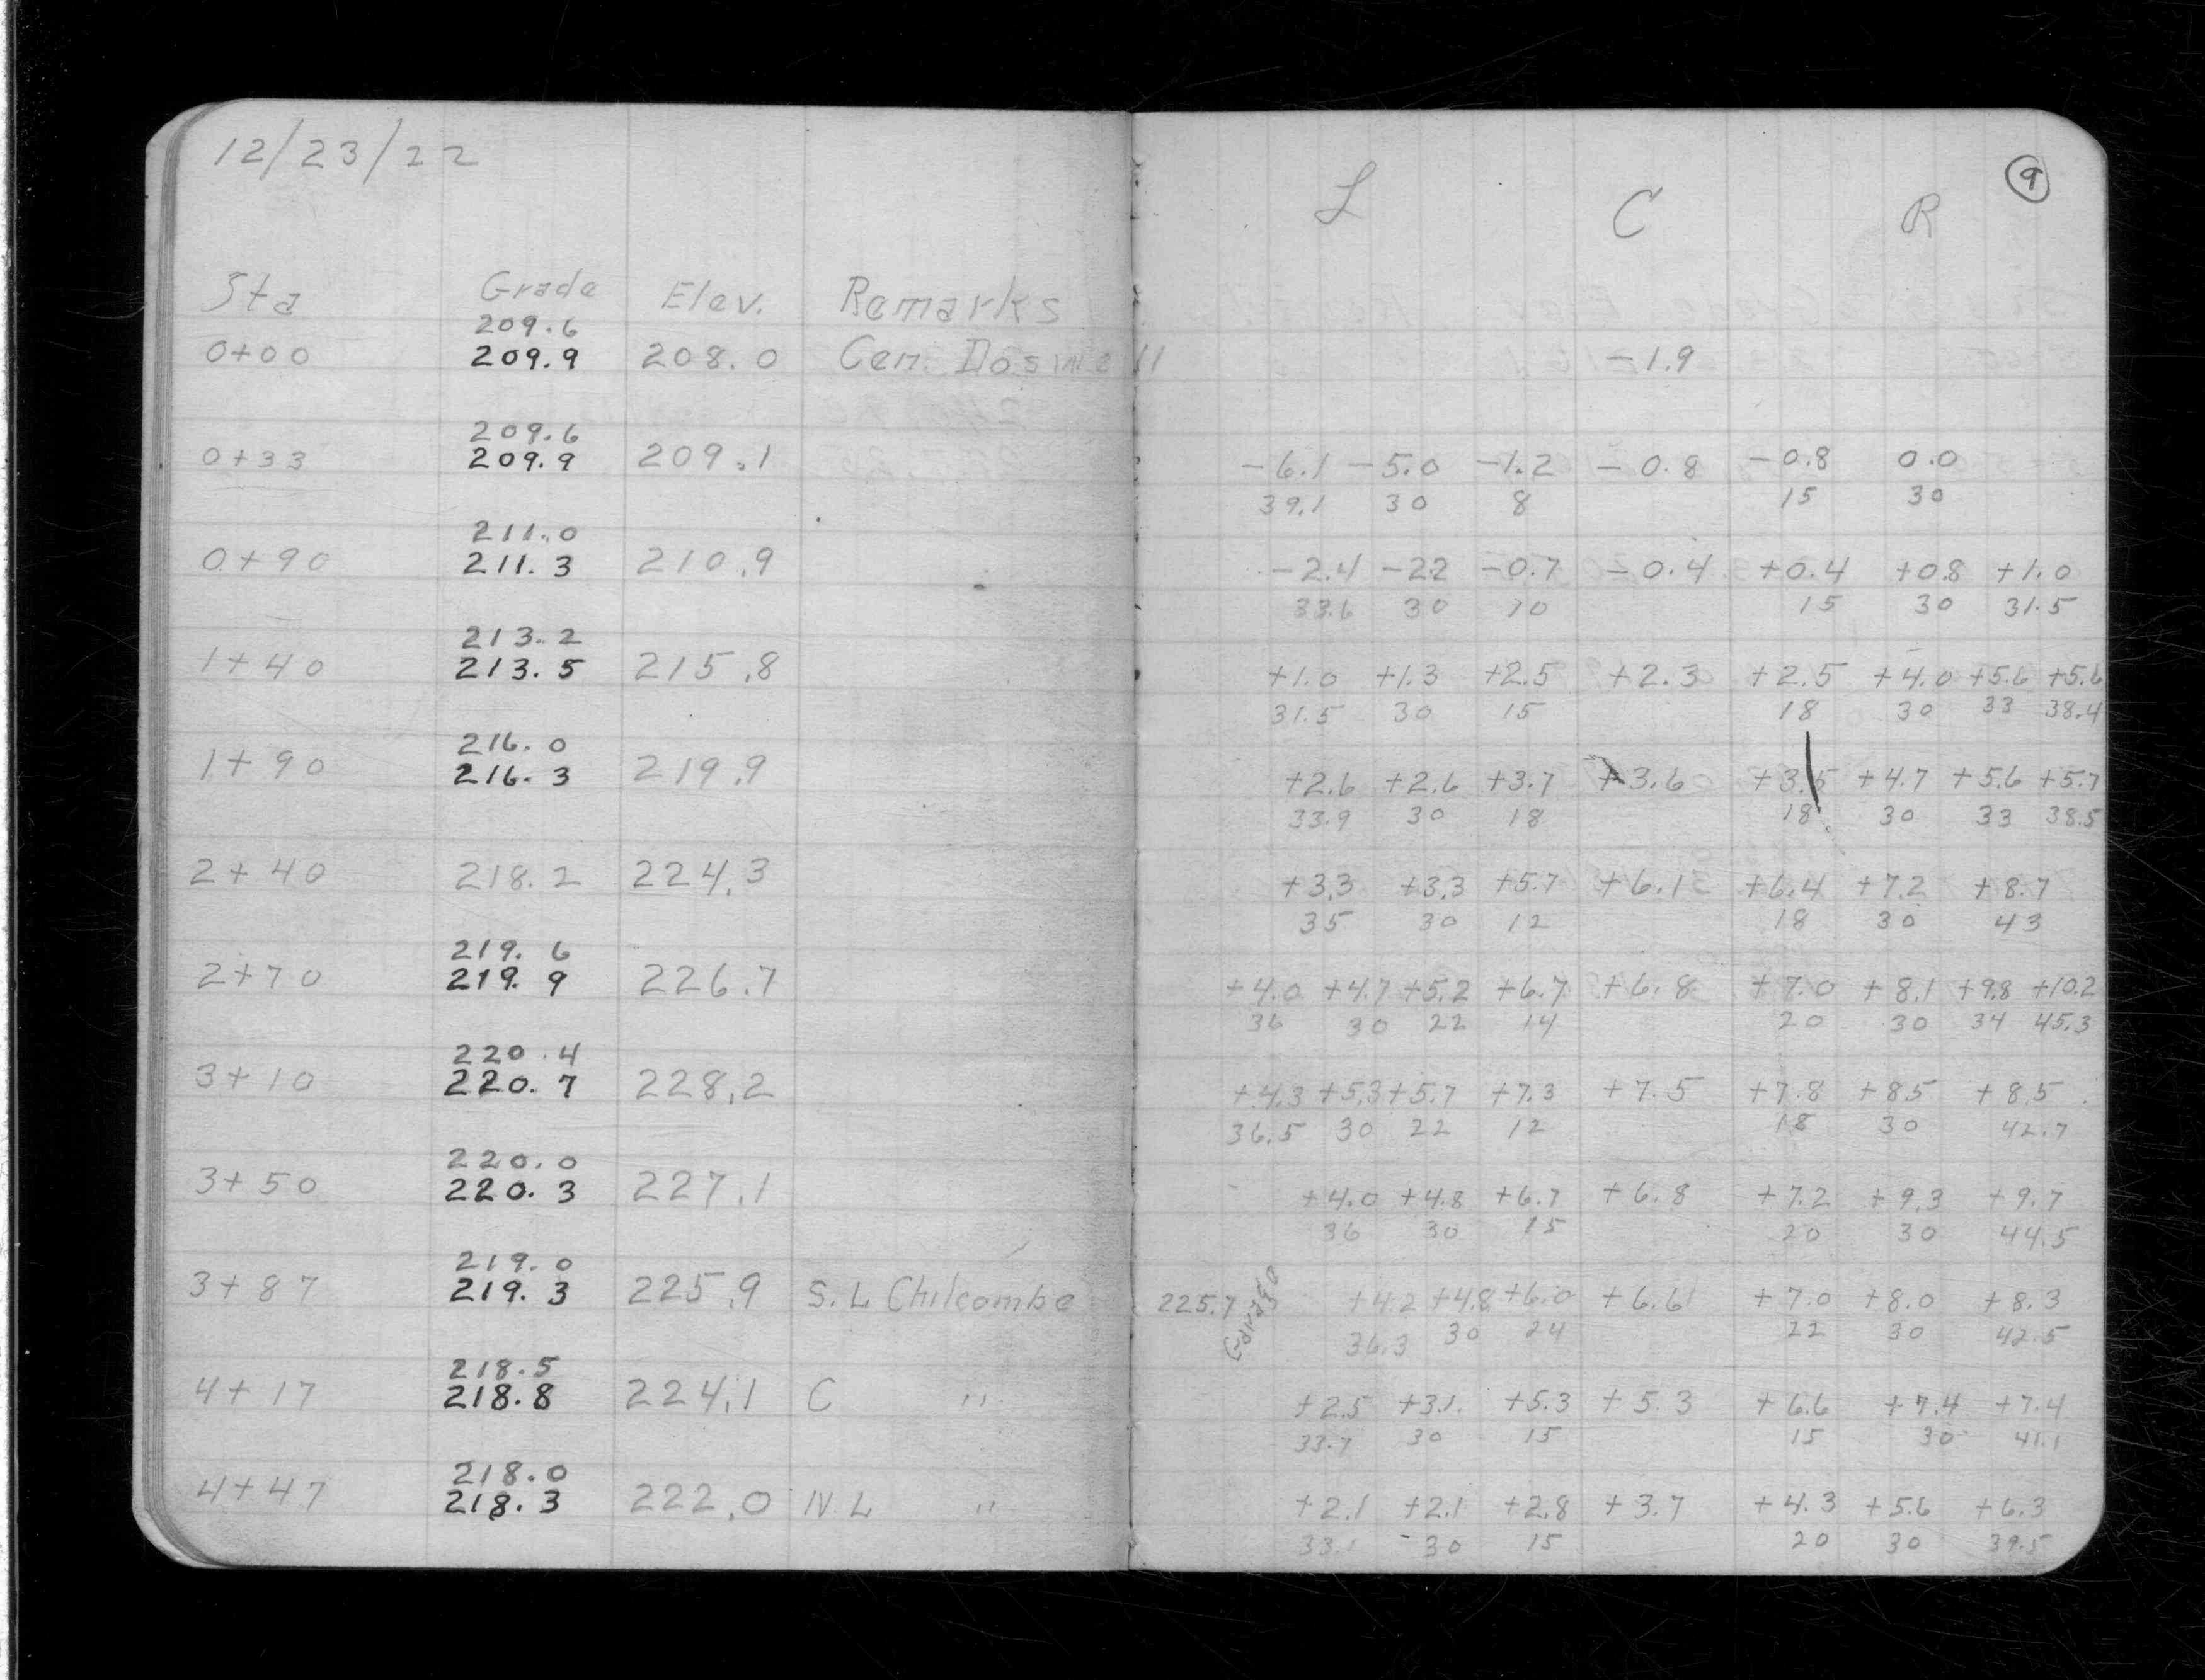 12/23/22
9
L C R
Sta Grade Elev. Remarks
209.6
0+00 209.9 208.0 Cen. Doswell -1.9
209.6
0+33 209.9 209.1 -6.1 -5.0 -1.2 -0.8 -0.8 0.0
39.1 30 8 15 30
211.0
0+90 211.3 210.9 -2.4 -2.2 -0.7 -0.4 +0.4 +0.8 +1.0
33.6 30 10 15 30 31.5
213.2
1+40 213.5 215.8 +1.0 +1.3 +2.5 +2.3 +2.5 +4.0 +5.6 +5.6
31.5 30 15 18 30 33 38.4
216.0
1+90 216.3 219.9 +2.6 +2.6 +3.7 +3.6 +3.5 +4.7 +5.6 +5.7
33.9 30 18 18 30 33 38.5
2+40 218.2 224.3 +3.3 +3.3 +5.7 +6.1 +6.4 +7.2 +8.7
35 30 12 18 30 43
219.6
2+70 219.9 226.7 +4.0 +4.7 +5.2 +6.7 +6.8 +7.0 +8.1 +9.8 +10.2
36 30 22 14 20 30 34 45.3
220.4
3+10 220.7 228.2 +4.3 +5.3 +5.7 +7.3 +7.5 +7.8 +8.5 +8.5
36.5 30 22 12 18 30 42.7
220.0
3+50 220.3 227.1 +4.0 +4.8 +6.7 +6.8 +7.2 +9.3 +9.7
36 30 15 20 30 44.5
219.0
3+87 219.3 225.9 S.L Chilcombe 225.7 Garage +4.2 +4.8 +6.0 +6.6 +7.0 +8.0 +8.3
36.3 30 24 22 30 42.5
218.5
4+17 218.8 224.1 C " +2.5 +3.1 +5.3 +5.3 +6.6 +7.4 +7.4
33.7 30 15 15 30 41.1
218.0
4+47 218.3 222.0 N.L " +2.1 +2.1 +2.8 +3.7 +4.3 +5.6 +6.3
33.1 30 15 20 30 39.5